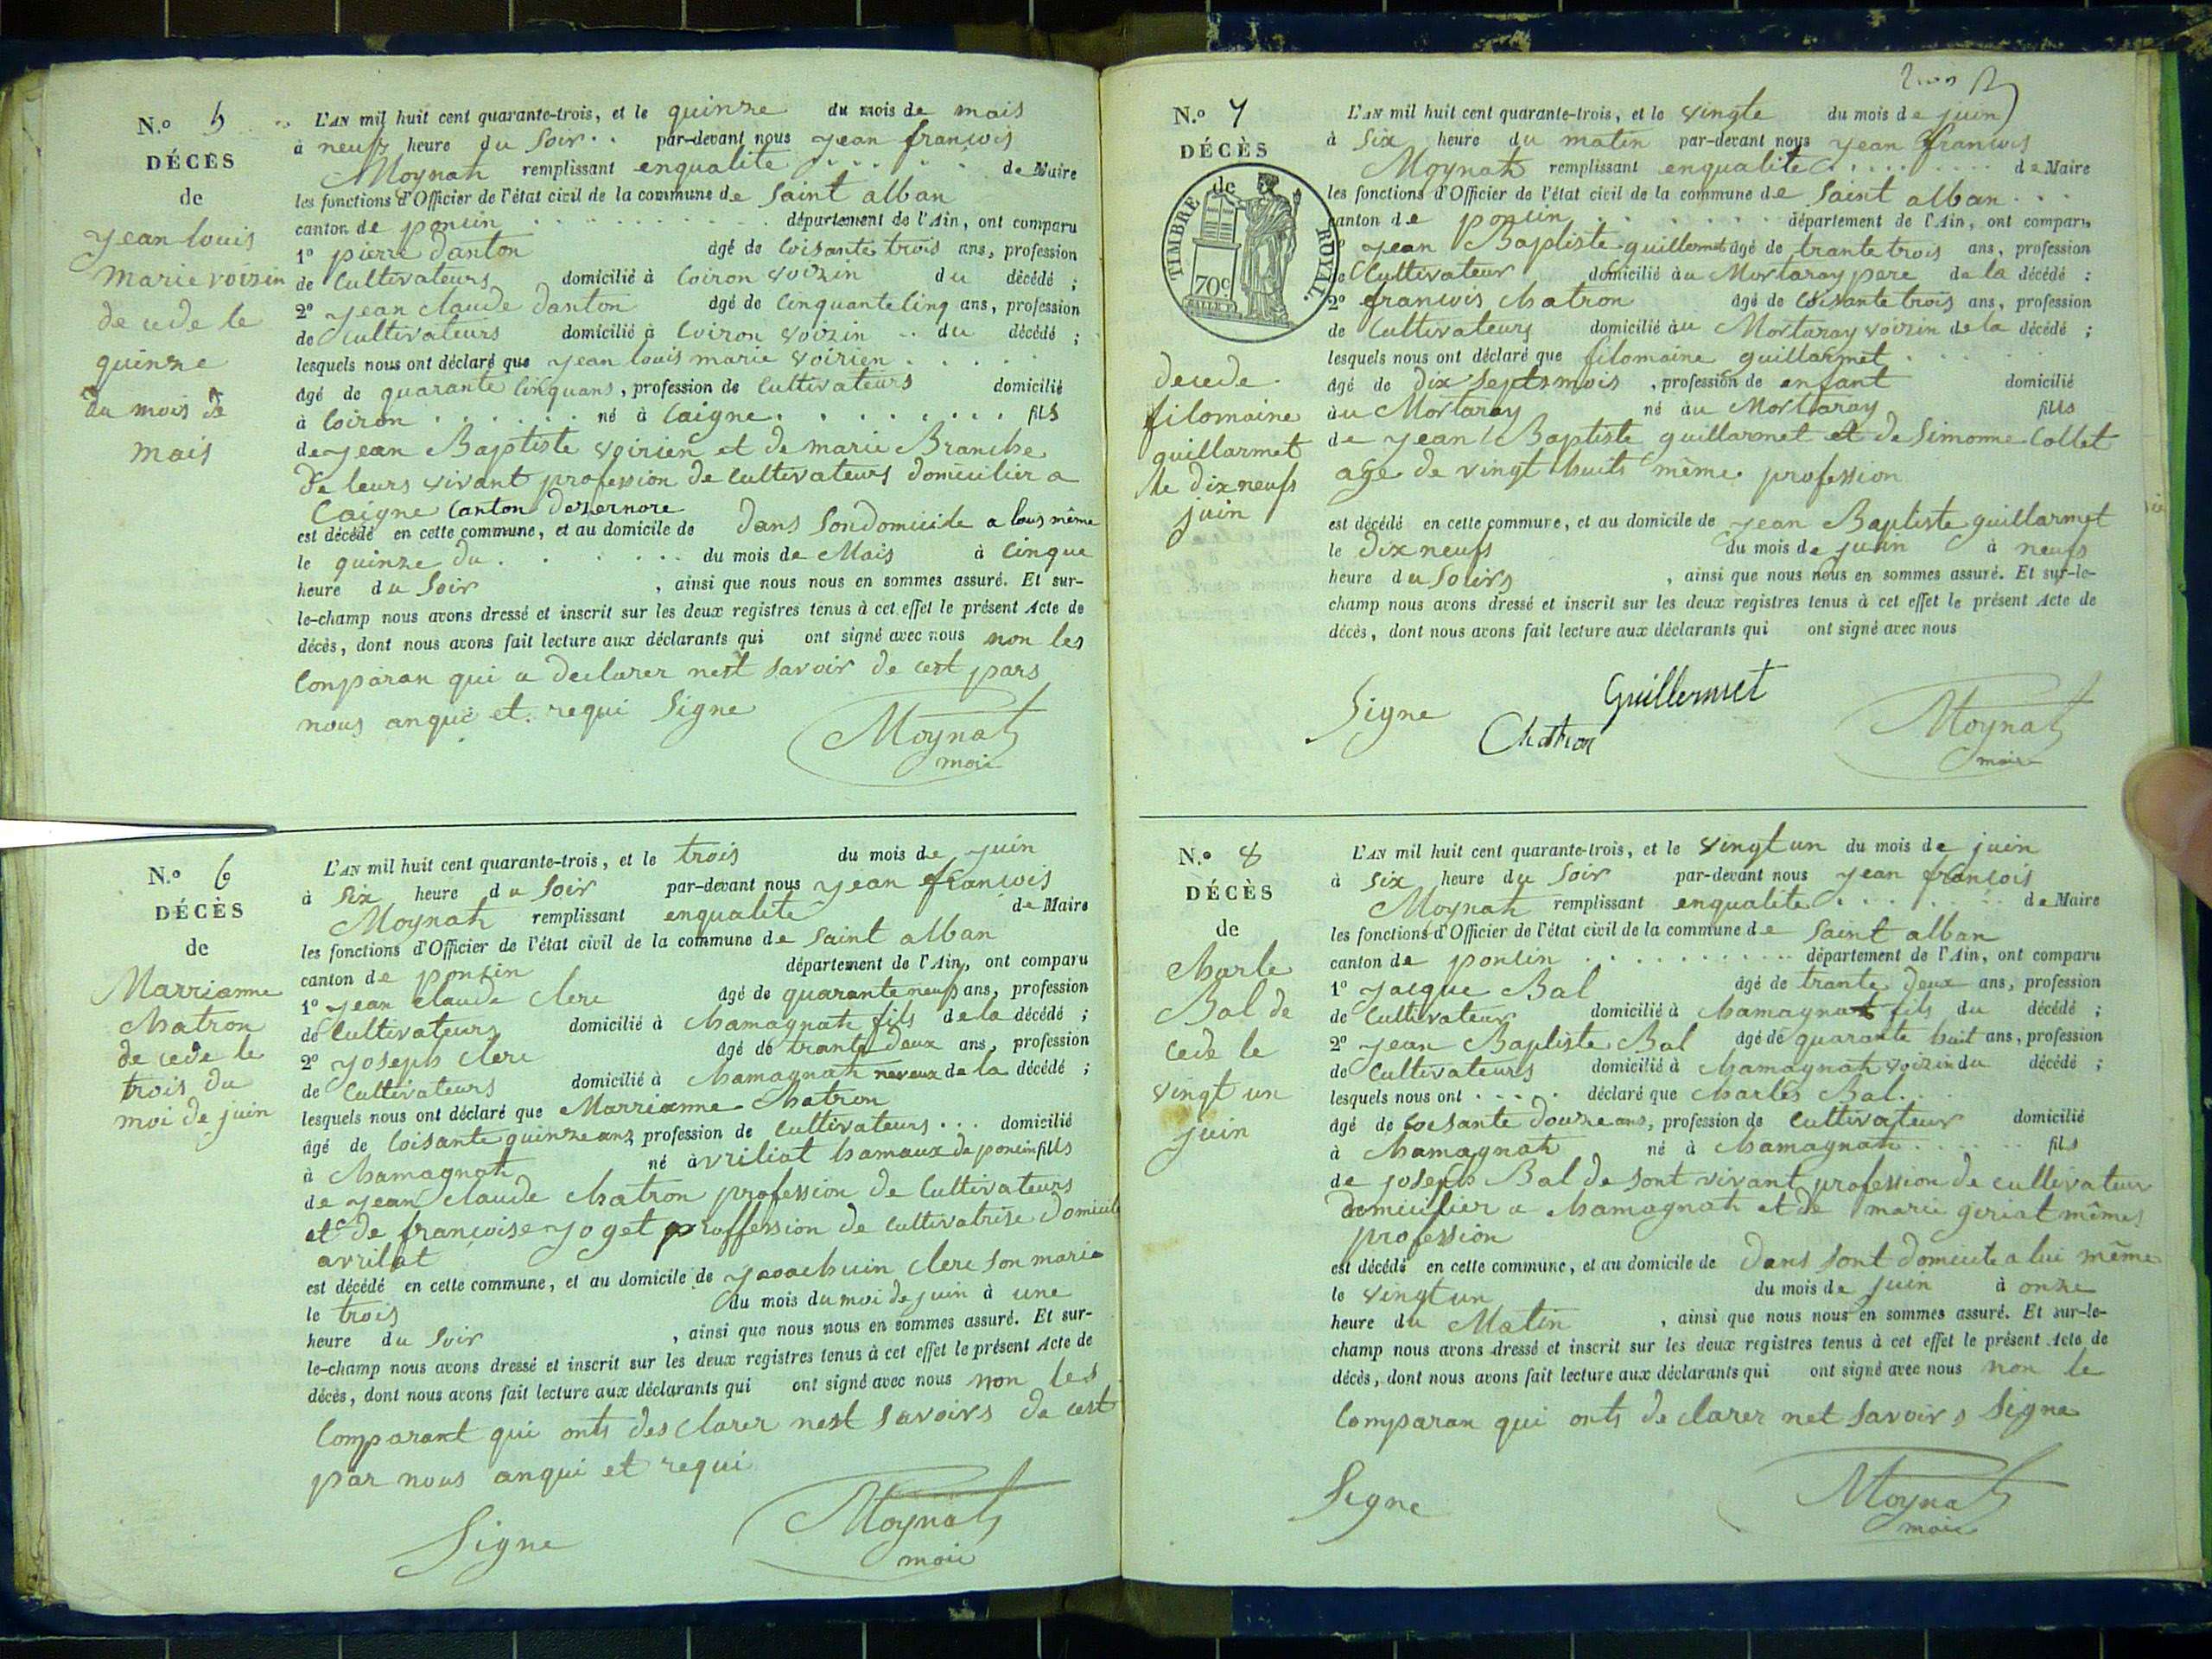 N.o 5
DÉCÈS
de
yean louis
marie voizin
de cede le
quinze
du mois de
mais
L'AN mil huit cent quarante-trois, et le quinze du mois de mais
à neufs heure du soir par-devant nous yean francois
Moynat remplissant enqualite de Maire
les fonctions d'Officier de l'état civil de la commune de saint alban
canton de poncin département de l'Ain, ont comparu
1o pierre danton âgé de soisante trois ans, profession
de Cultivateurs domicilié à Coiron voizin du décédé ;
2o yean claude danton âgé de Cinquante cinq ans, profession
de cultivateurs domicilié à Coiron voizin du décédé ;
lesquels nous ont déclaré que yean louis marie voirien
âgé de quarante cinquans, profession de Cultivateurs domicilié
à Coiron né à Caigne fils
de yean Baptiste voirien et de marie Branche
de leurs vivant profession de cultivateurs domicilier a
Caigne Canton dezernore
est décédé en cette commune, et au domicile de dans son domicile a lous même
le quinze du du mois de Mais à Cinque
heure du soir , ainsi que nous nous en sommes assuré. Et sur-
le-champ nous avons dressé et inscrit sur les deux registres tenus à cet effet le présent Acte de
décès, dont nous avons fait lecture aux déclarants qui ont signé avec nous non les
Comparan qui a declarer nest savoir de cest pars
nous anqui et requi Signe
Moynat
mair
N.o 6
DÉCÈS
de
Marrianne
Chatron
de cede le
trois du
moi de juin
L'AN mil huit cent quarante-trois, et le trois du mois de juin
à six heure du soir par-devant nous yean francois
Moynat remplissant enqualite de Maire
les fonctions d'Officier de l'état civil de la commune de saint alban
canton de ponsin département de l'Ain, ont comparu
1o yean claude clerc âgé de quarante neuf ans, profession
de Cultivateurs domicilié à chamagnat fils de la décédé ;
2o yoseph clerc âgé de trante deux ans, profession
de Cultivateurs domicilié à chamagnat neveux de la décédé ;
lesquels nous ont déclaré que Marrianne Chatron
âgé de soisante quinze ans profession de Cultivateurs domicilié
à chamagnat né à vriliat hamaux de poncin fills
de yean claude chatron profession de Cultivateurs
et de francoise yoget proffession de cultivatrise domicile
avrilat
est décédé en cette commune, et au domicile de yaoachuin clerc son marie
le trois du mois du moi de juin à une
heure du soir , ainsi que nous nous en sommes assuré. Et sur-
le-champ nous avons dressé et inscrit sur les deux registres tenus à cet effet le présent Acte de
décès, dont nous avons fait lecture aux déclarants qui ont signé avec nous non les
Comparant qui onts des clarer nest savoirs de cest
par nous anqui et requi
Signe
Moynat
mair
N.o 7
DÉCÈS
de
TIMBRE ROYAL.
70c
decede
filomaine
guillarmet
le dix neufs
juin
L'AN mil huit cent quarante-trois, et le vingte du mois de juin
à six heure du matin par-devant nous yean francois
Moynat remplissant enqualite de Maire
les fonctions d'Officier de l'état civil de la commune de saint alban
canton de poncin département de l'Ain, ont comparu
1o yean Baptiste guillermet âgé de trante trois ans, profession
de Cultivateur domicilié àu Mortaray pere de la décédé ;
2o francois chatron âgé de soisante trois ans, profession
de Cultivateurs domicilié àu Mortaray voizin de la décédé ;
lesquels nous ont déclaré que filomaine guillarmet
âgé de dix septs mois , profession de enfant domicilié
àu Mortaray né àu Mortaray fills
de yean Baptiste guillarmet et de Simonne Collet
age de vingt huits même profession
est décédé en cette commune, et au domicile de yean Baptiste guillarmet
le dix neufs du mois de juin à neufs
heure du soirs , ainsi que nous nous en sommes assuré. Et sur-le-
champ nous avons dressé et inscrit sur les deux registres tenus à cet effet le présent Acte de
décès, dont nous avons fait lecture aux déclarants qui ont signé avec nous
Signe
Guillermet
Chatron
Moynat
maire
N.o 8
DÉCÈS
de
Charle
Bal de
cede le
vingt un
juin
L'AN mil huit cent quarante-trois, et le vingt un du mois de juin
à six heure du soir par-devant nous yean francois
Moynat remplissant enqualite de Maire
les fonctions d'Officier de l'état civil de la commune de saint alban
canton de poncin département de l'Ain, ont comparu
1o yacque Bal âgé de trante deux ans, profession
de Cultivateur domicilié à chamagnat fils du décédé ;
2o yean Baptiste Bal âgé de quarante huit ans, profession
de Cultivateurs domicilié à chamagnat voizin du décédé ;
lesquels nous ont déclaré que charles Bal
âgé de soisante douze ans, profession de Cultivateur domicilié
à chamagnat né à chamagnat fils
de joseph Bal de sont vivant profession de cultivateur
domicilier a chamagnat et de marie giriat mêmes
profession
est décédé en cette commune, et au domicile de dans sont domicile a lui même
le vingt un du mois de juin à onze
heure du Matin , ainsi que nous nous en sommes assuré. Et sur-le-
champ nous avons dressé et inscrit sur les deux registres tenus à cet effet le présent Acte de
décès, dont nous avons fait lecture aux déclarants qui ont signé avec nous non le
Comparan qui onts de clarer net savoirs Signe
Signe
Moynat
mair